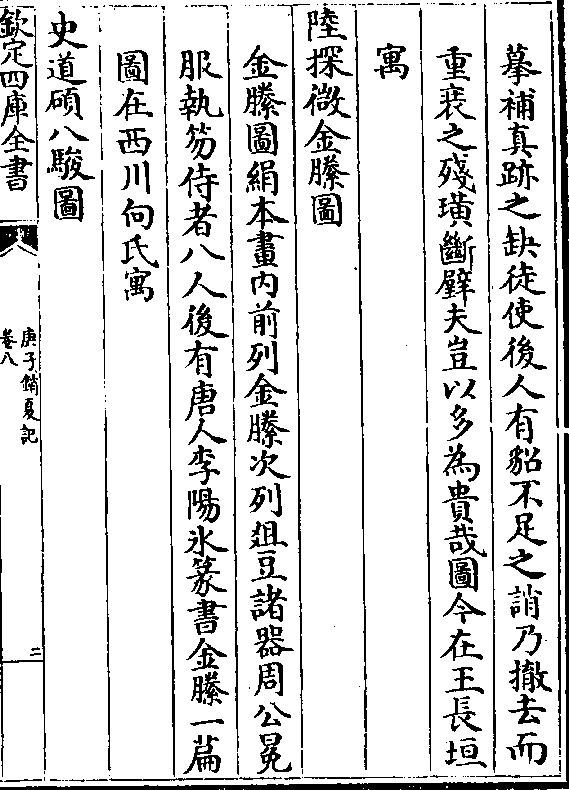 摹補真跡之缺徒使後人有貂不足之誚乃撤去而
重裘之殘璜斷璧夫豈以多為貴哉圖今在王長垣
寓
陸探微金縢圖
金縢圖絹本畫内前列金縢次列俎豆諸器周公冕
服執笏侍者八人後有唐人李陽冰篆書金縢一篇
圖在西川向氏寓
史道碩八駿圖
欽定四庫全書
庚子銷夏記
卷八
二